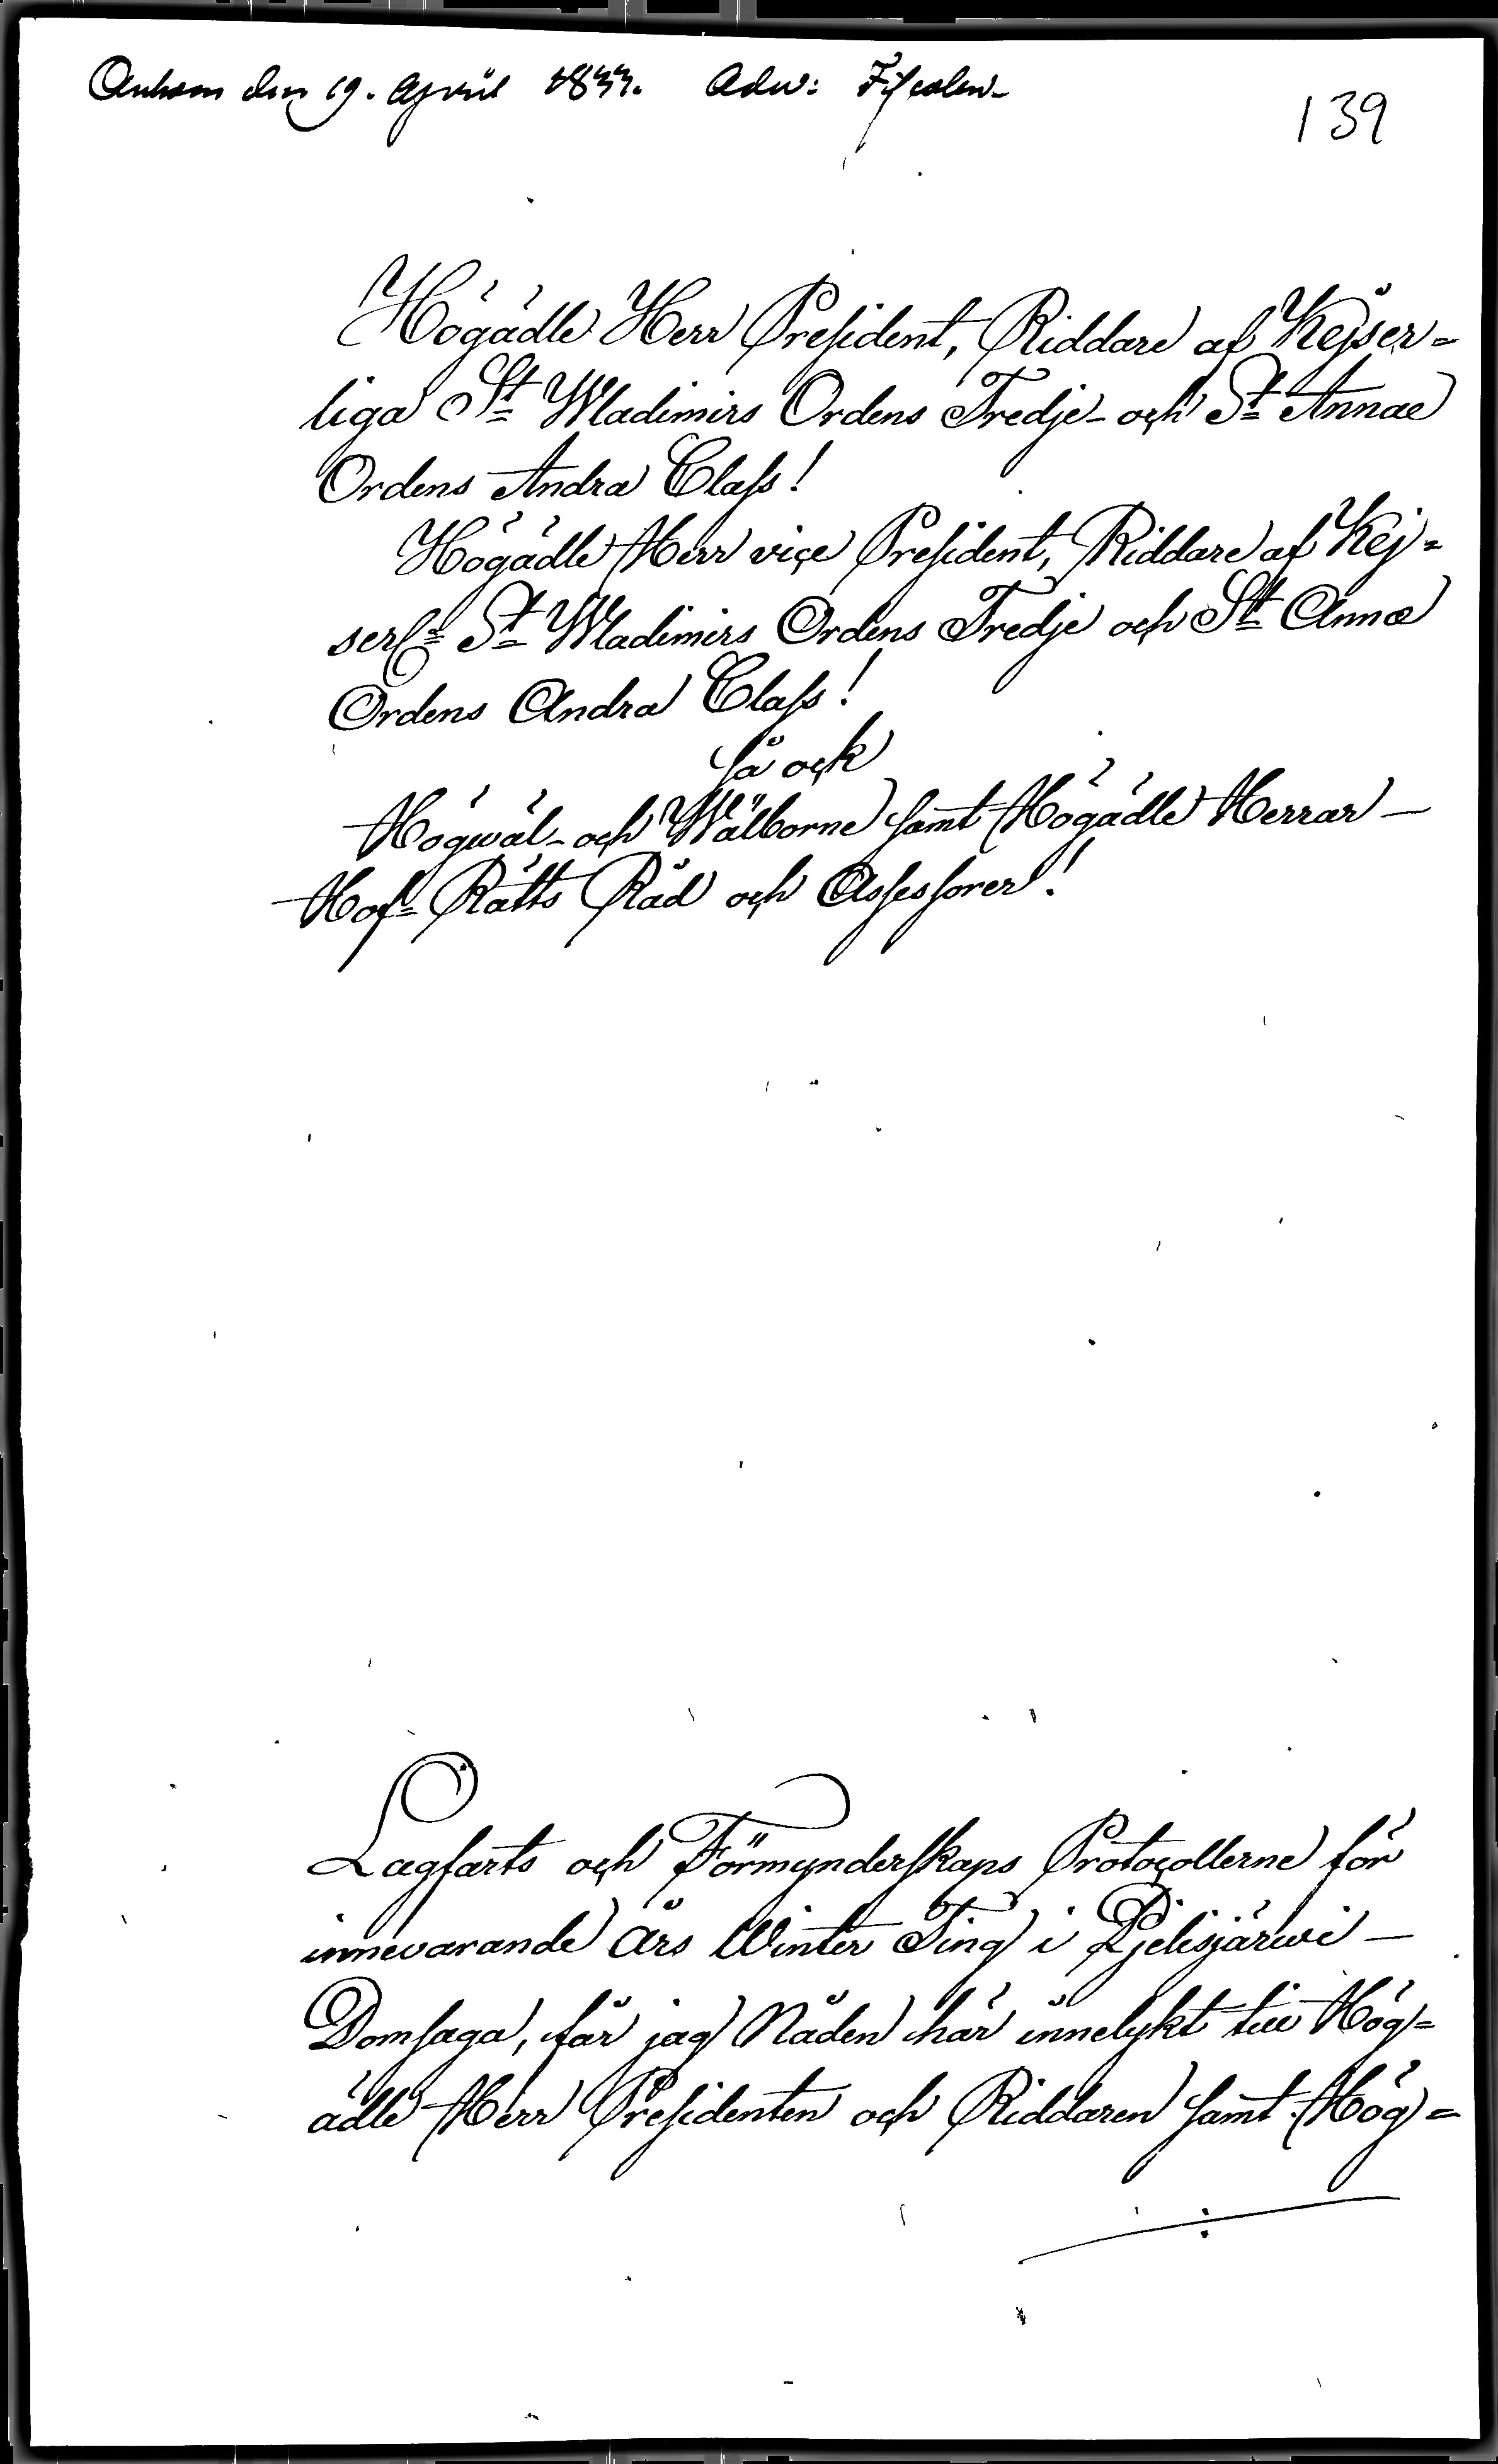 Ankom den 19. April 1833. Adv: Fiscalen
139
Högädle Herr President, Riddare af Kejser=
liga St Wladimirs Ordens Tredje- och St Annae
Ordens Andra Class!
Högädle Herr vice President, Riddare af Kej=
serl= St Wladimirs Ordens Tredje och St Annæ
Ordens Andra Class!
så ock
Högwäl- och Wälborne samt Högädle Herrar—
Hof-Rätts Råd och Assessorer!
Lagfarts och Förmynderskaps Protocollerne för
innevarande års Winter Ting i Pjelisjärwi—
Domsaga, får jag Nåden här innelykt till Hög=
ädle Herr Presidenten och Riddaren samt Hög=